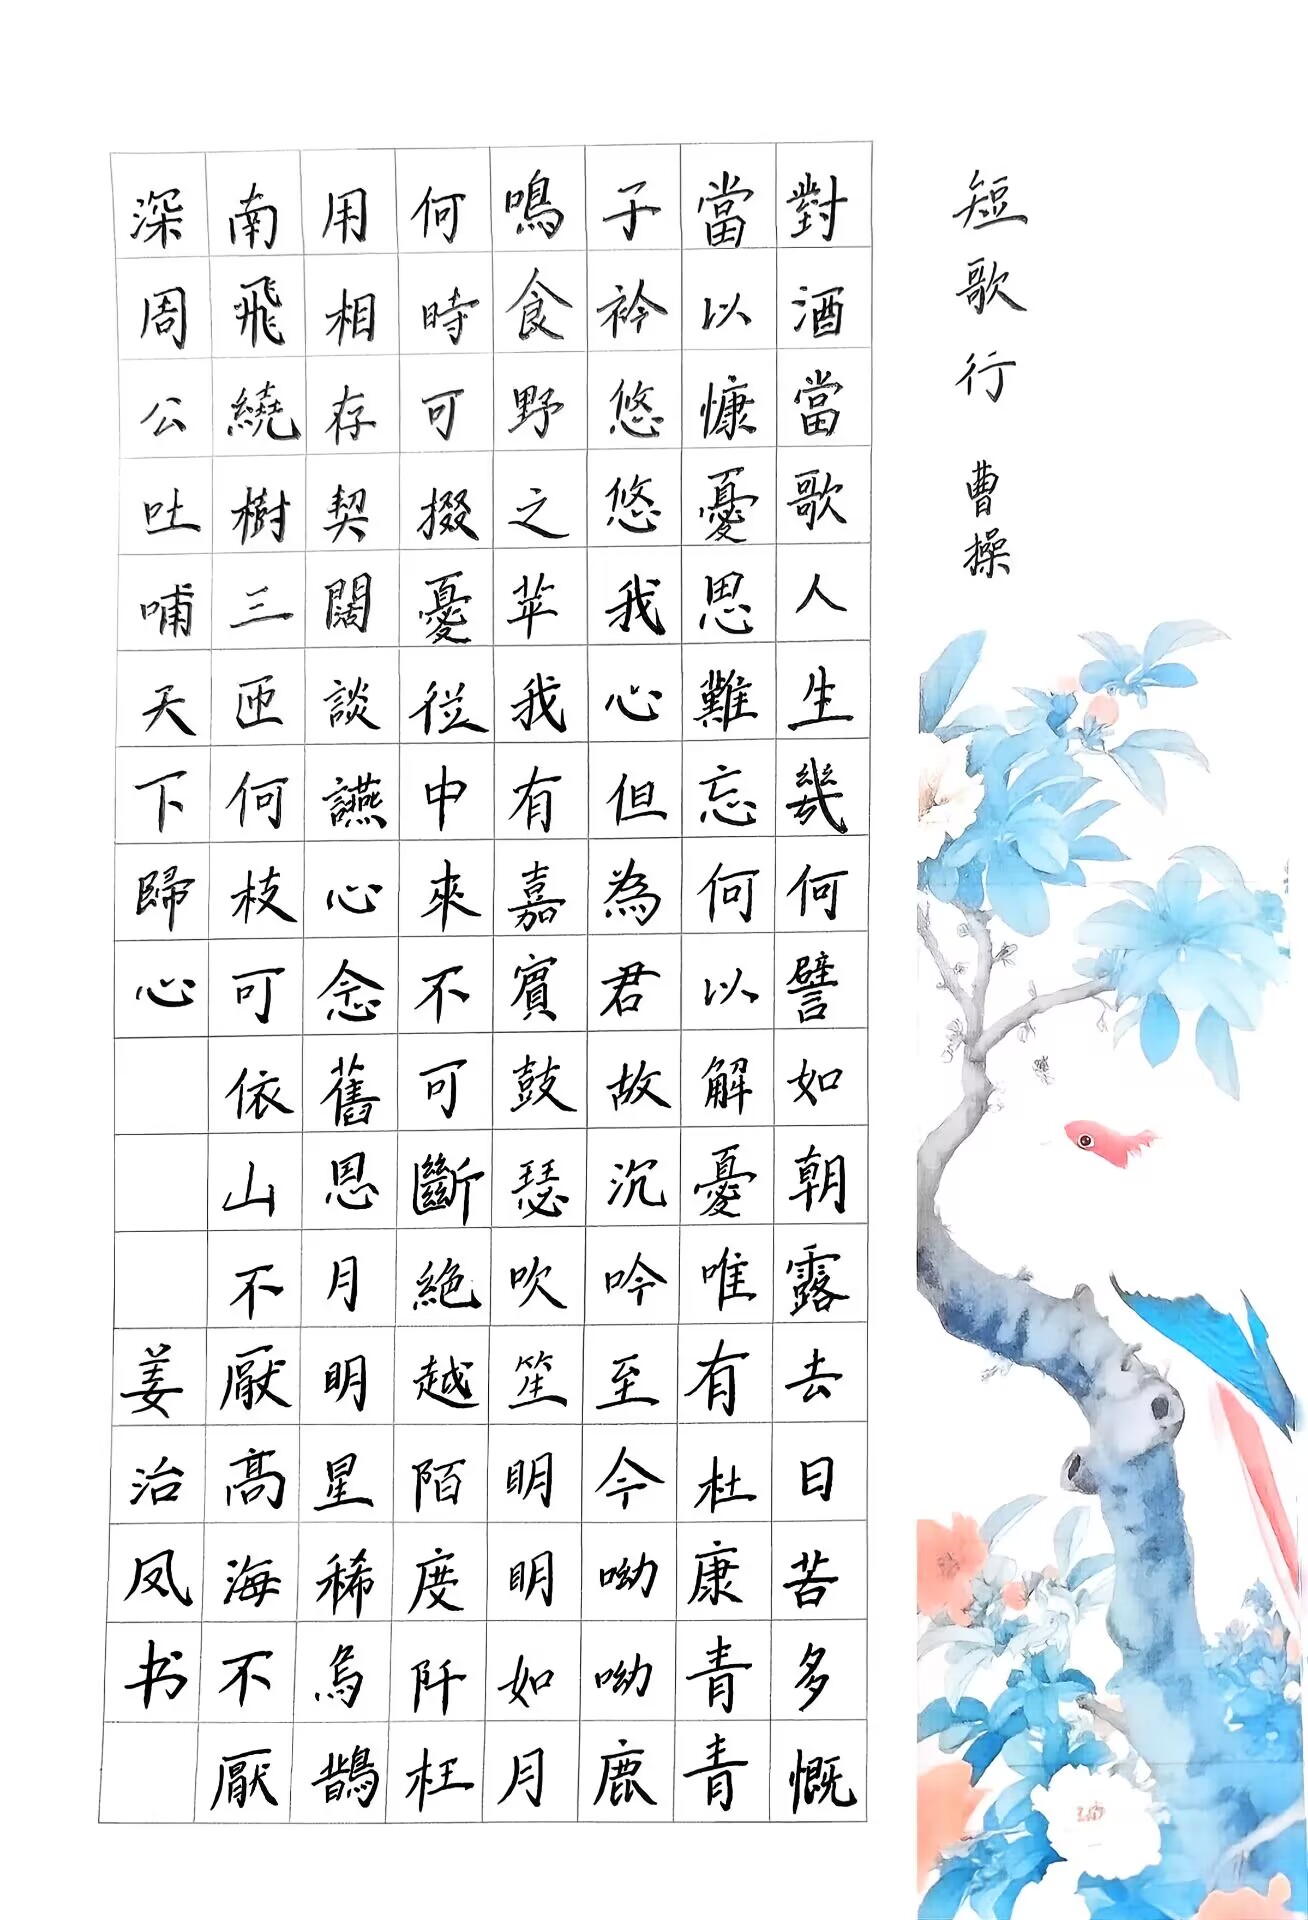 短歌行 曹操
對酒當歌人生幾何譬如朝露去日苦多慨
當以慷憂思難忘何以解憂唯有杜康青青
子衿悠悠我心但為君故沉吟至今呦呦鹿
鳴食野之苹我有嘉賓鼓瑟吹笙明明如月
何時可掇憂從中來不可斷絕越陌度阡枉
用相存契闊談讌心念舊恩月明星稀烏鵲
南飛繞樹三匝何枝可依山不厭高海不厭
深周公吐哺天下歸心 姜治凤书